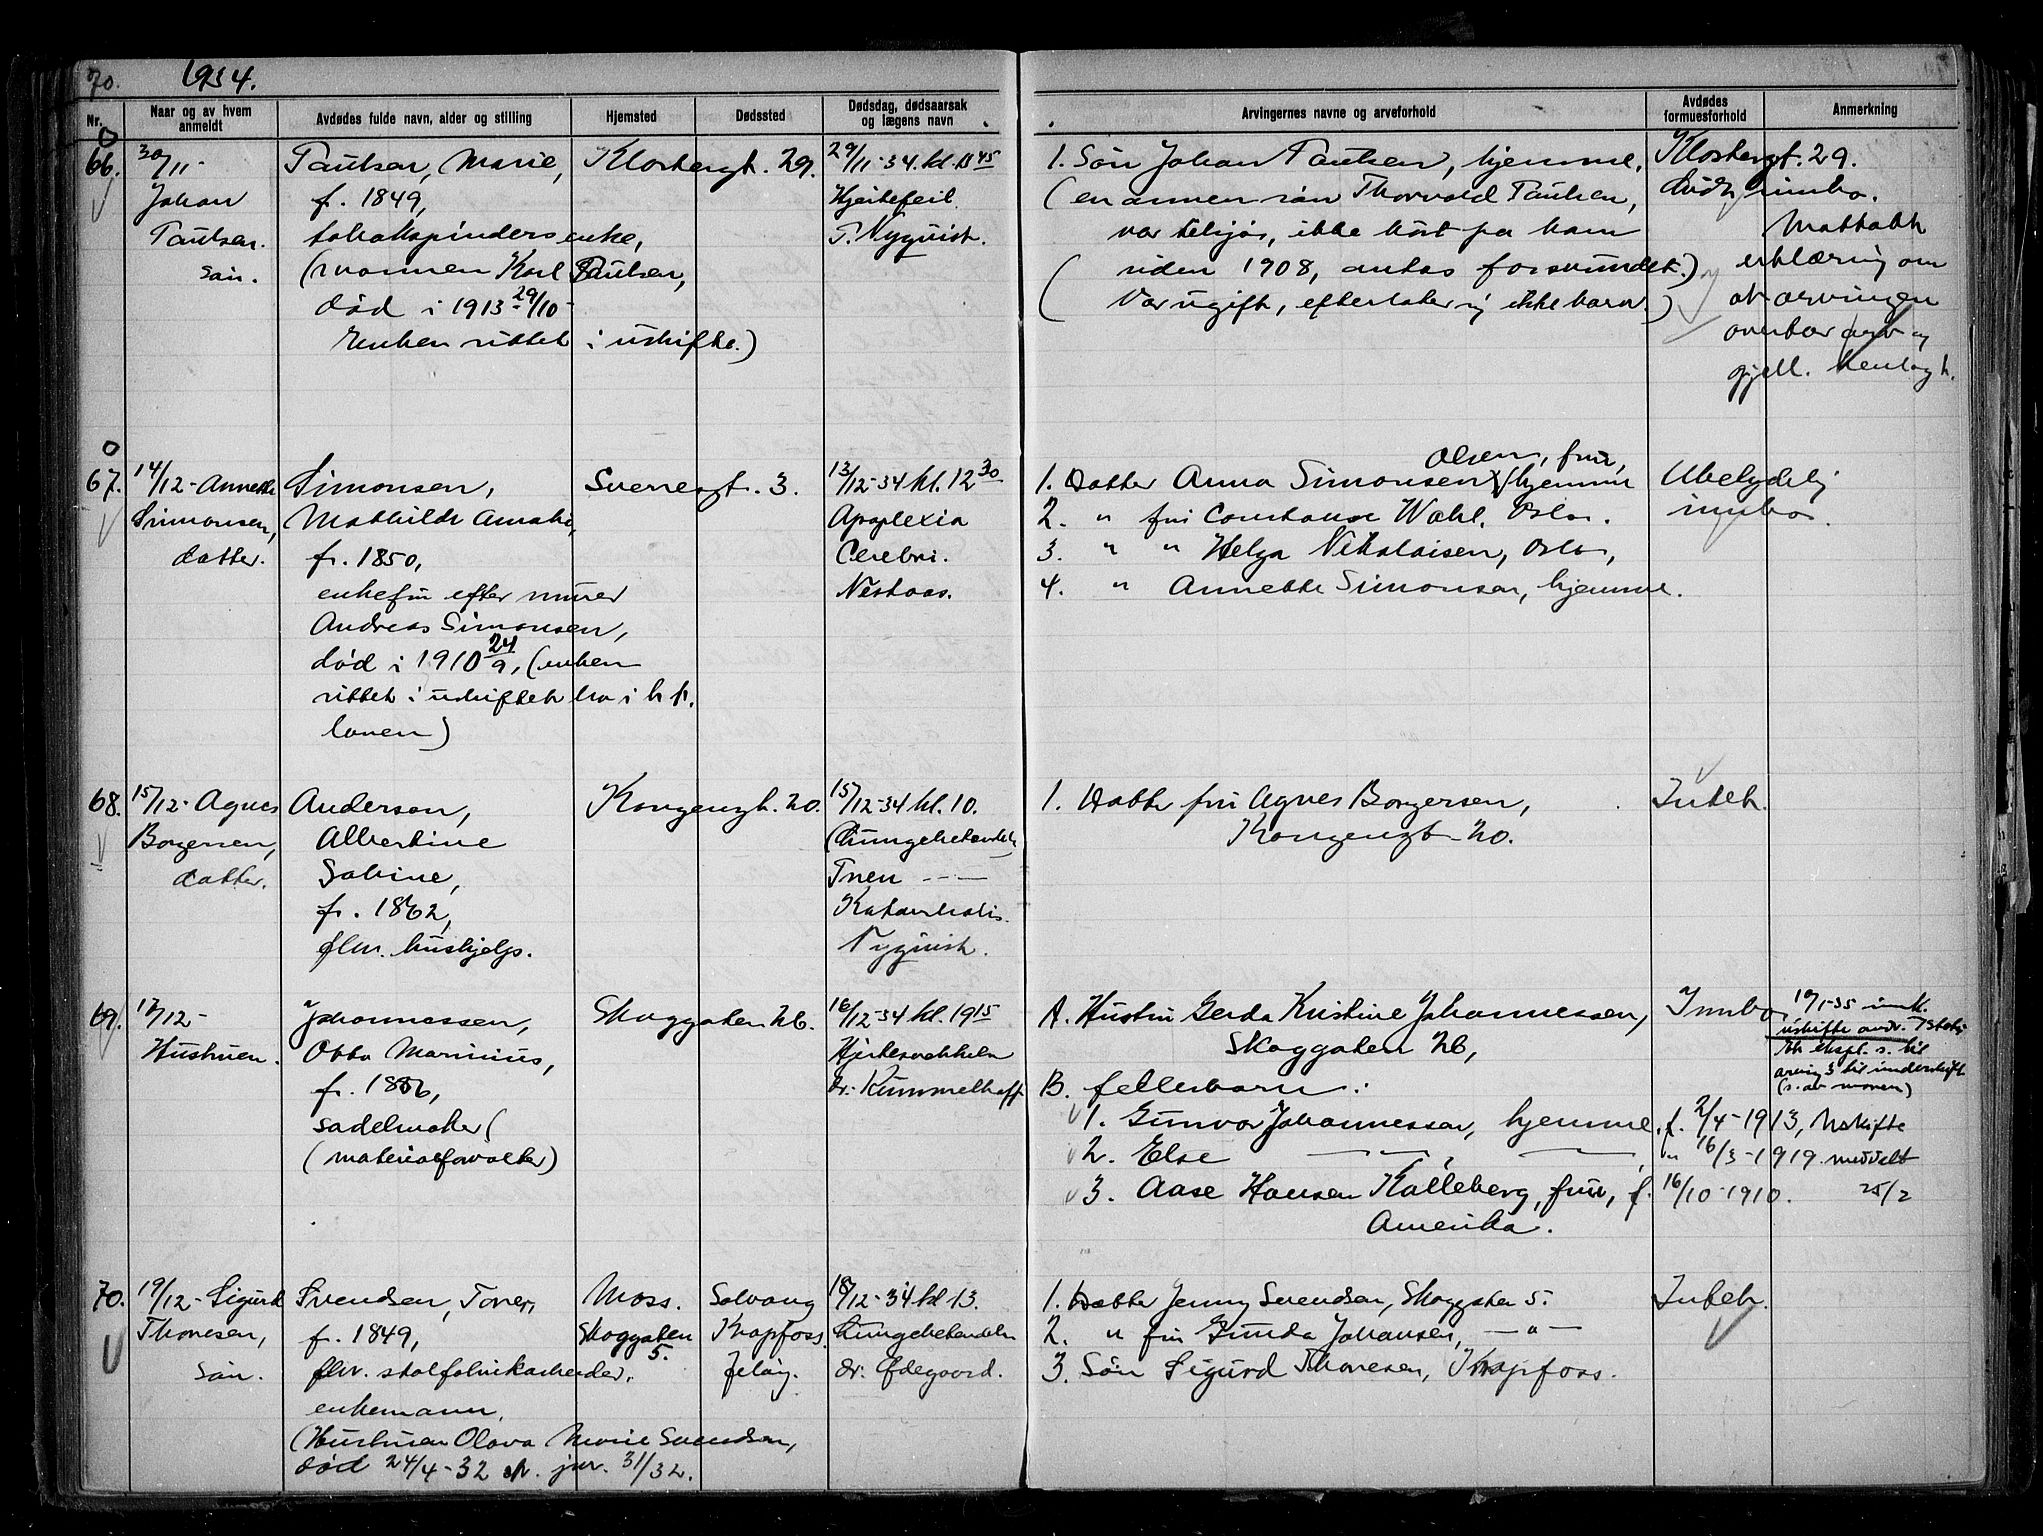 70.
1934.
Nr.
Naar og av hvem anmeldt
Avdødes fulde navn, alder og stilling
Hjemsted
Dødssted
Dødsdag, dødsaarsak og lægens navn
Arvingernes navne og arveforhold
Avdødes formuesforhold
Anmerkning
66.
30/11-
Johan
Paulsen.
søn.
Paulsen, Marie,
f. 1849,
enke,
Karl Paulsen,
død i 1913 29/10-
Enken sittet i uskifte.)
Klostergt. 29.
29/11-34 kl. 13 45
Hjertefeil.
Nyquist.
1. Søn Johan Paulsen, hjemme,
(en annen søn Thorvald Paulsen,
var tilsjøs, ikke hørt fra ham
siden 1908, antas forsvundet.)
(Var ugift, efterlater sig ikke barn.)
Klostergt. 29.
innbo.
Mottatt
erklæring om
at arvingen
overtar arv og
gjeld. Henlagt.
67.
14/12- Annette
Simonsen,
datter.
Simonsen,
Mathilde Amalie,
f. 1850,
enkefru efter murer
Andreas Simonsen,
død i 1910 24/9, (enken
sittet i uskiftet bo i h. t.
loven)
Sverresgt. 3.
13/12-34 kl. 12 30
Apoplexia
Cerebri.
Nestaas.
Olsen, fru,
1. Datter Anna Simonsen, hjemme
2. " fru Constance Wahl, Oslo.
3. " " Helga Nikolaisen, Oslo,
4. " Annette Simonsen, hjemme.
Ubetydelig
innbo.
68.
15/12- Agnes
Borgersen,
datter.
Andersen,
Albertine
Sabine,
f. 1862,
fhv. hushjelp.
Kongensgt. 20.
15/12-34 kl. 10.
(Lungebetændelse
Pneu ---
Katarrhalis.
Nyquist.
1. Datter fru Agnes Borgersen,
Kongensgt. 20.
Intet.
69.
17/12-
Hustruen.
Johannessen,
Otto Marinius,
f. 1886,
sadelmaker (
(materialforvalter)
Skoggaten 26.
16/12-34 kl. 19 15
Hjerteonde
dr. Kummelhoff
A. Hustru Gerda Kristine Johannessen,
Skoggaten 26,
B. fellesbarn:
1. Gunvor Johannessen, hjemme, f. 2/4-1913,
2. Else — " — — , " 16/3-1919.
3. Aase Hansen Kalleberg, fru, f. 16/10-1910.
Amerika.
Innbo
arving 3 til underskrift
(s. av moren)
Uskifte
meddelt
25/2
70.
19/12- Sigurd
Thoresen,
søn.
Svendsen, Tores,
f. 1849,
fhv. stolfabrikarbeider.
enkemann.
(Hustruen Olava Marie Svendsen,
død 24/4-32 jnr. 31/32.
Moss.
Skoggaten
5.
Solvang
Krapfoss.
Jeløy.
18/12-34 kl 13.
Lungebetændelse
dr. Ødegaard.
1. Datter Jenny Svendsen, Skoggaten 5.
2. " fru Gunda Johansen, — " —
3. Søn Sigurd Thoresen, Krapfoss.
Intet.